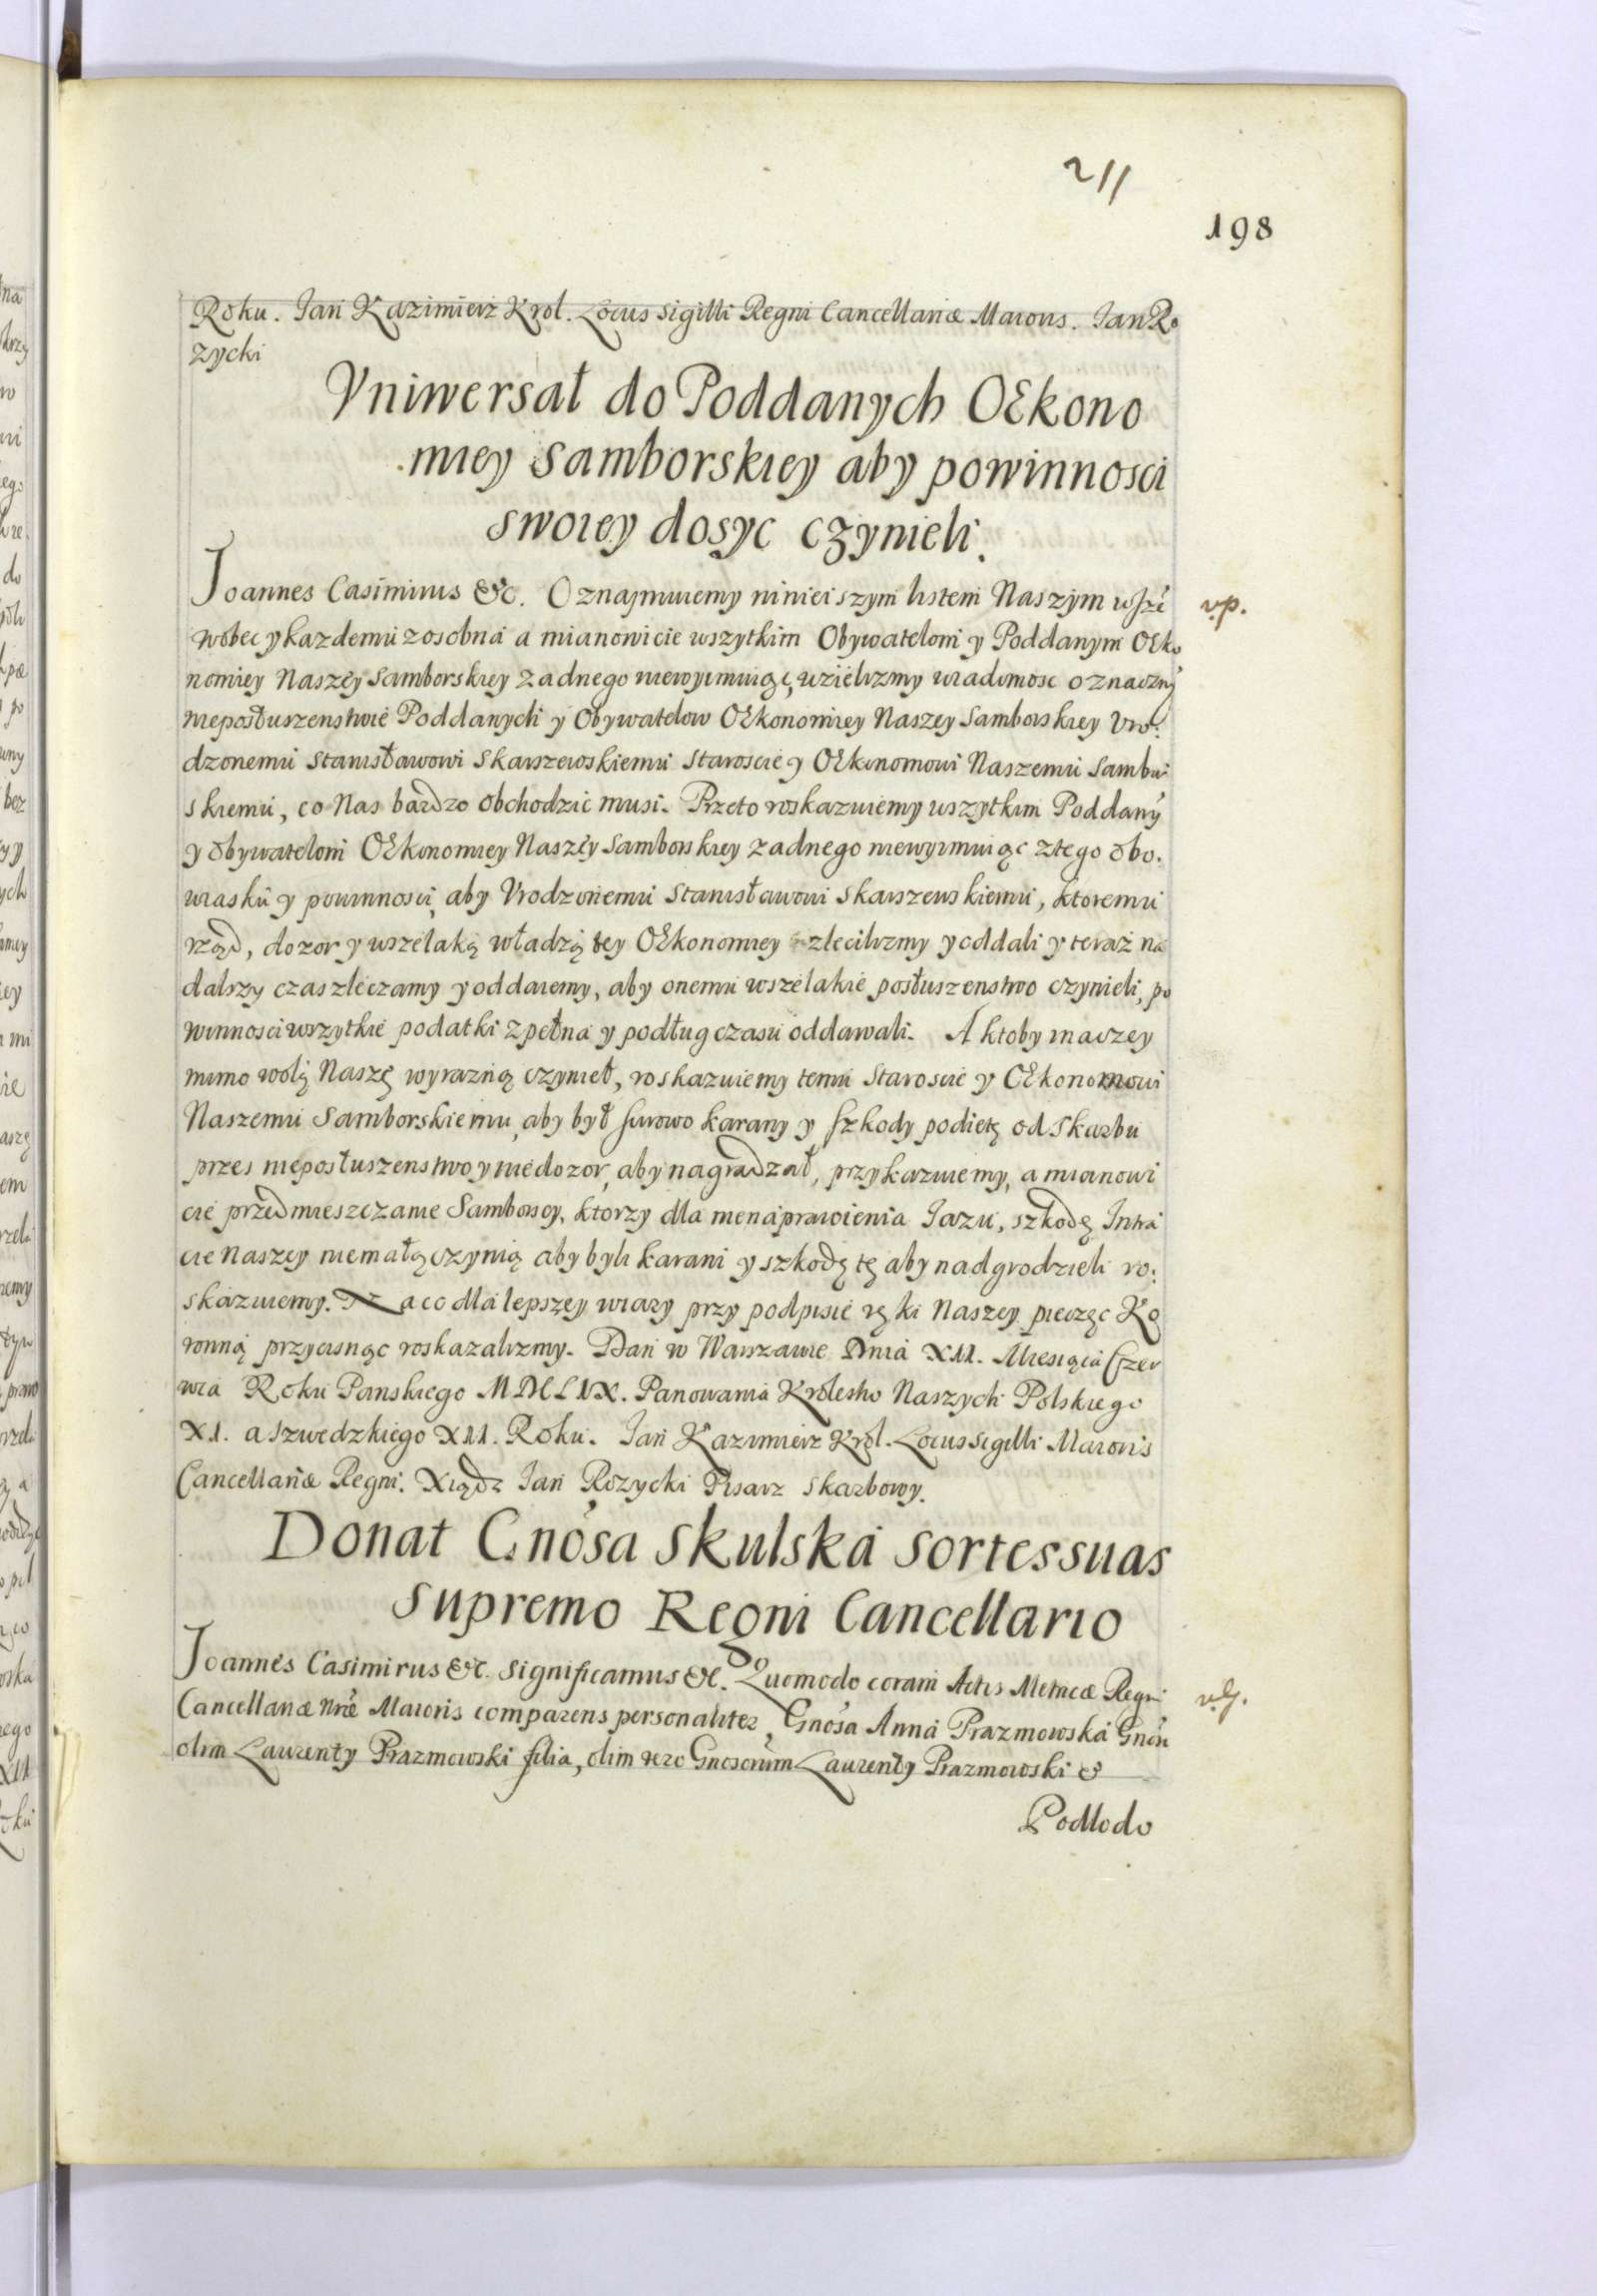 211
198
Roku. Jan Kazimierz Krol. Locus Sigilli Regni Cancellariæ Maioris. Jan Ro
zycki
Vniwersał do Poddanych OEkono
miey Samborskiey aby powinnosci
swoiey dosyc czynieli.
Joannes Casimirus &c. Oznajmuiemy ninieiszym listem Naszym wszẽ
v.p.
wobec y kazdemu zosobna a mianowicie wszytkim Obywatelom y Poddanym OEko
nomiey Naszey Samborskiey zadnego niewyimuiąc, uzielizmy wiadomosc oznaczny
nieposłuszenstwie Poddanych y Obywatelow OEkonomiey Naszey Samborskiey Vro:
dzonemu Stanisławowi Skarszewskiemu Staroscie y OEkonomowi Naszemu Sambor
skiemu, co Nas bardzo obchodzic musi. Przeto roskazuiemy wszytkim Poddanỹ
y obywatelom OEkonomiey Naszey Samborskiey zadnego niewyimuiąc ztego obo:
wiasku y powinnosci, aby Vrodzonemu Stanisławowi Skarszewskiemu, ktoremu
rząd, dozor y wszelaką władzą tey OEkonomiey zlecilizmy y oddali y teraz na
dalszy czas zleczamy y oddaiemy, aby onemu wszelakie posłuszenstwo czynieli, po
winnosci wszytkie podatki zpełna y podług czasu oddawali. A ktoby inaczey
mimo wolą Naszę wyrazną czynieł, roskazuiemy temu Staroscie y OEkonomowi
Naszemu Samborskiemu, aby był surowo karany y szkody podiętę od Skarbu
przes nieposłuszenstwo y niedozor, aby nagradzał, przykazuiemy, a mianowi
cie przedmieszczanie Samborscy, ktorzy dla nienaprawienia Jazu, szkodę Intra
cie Naszey niemałą czynią aby byli karani y szkodę tę aby nadgrodzieli ro:
skazuiemy. Na co dla lepszey wiary przy podpisie ręki Naszey pieczęc Ko
ronną przycisnąc roskazalizmy. Dan w Warszawie Dnia XII. Miesiąca Czer
wca Roku Panskiego MDCLIX. Panowania Krolestw Naszych Polskiego
XI. a Szwedzkiego XII. Roku. Jan Kazimierz Krol. Locus Sigilli Maioris
Cancellariæ Regni. Xiądz Jan Rozycki Pisarz Skarbowy.
Donat Gnosa Skulska sortes suas
supremo Regni Cancellario
Joannes Casimirus &c. Significamus &c. Quomodo coram Actis Metricæ Regni
Cancellariæ nr̃æ Maioris comparens personaliter Gnosa Anna Prazmowska Gnõsi
olim Laurenty Prazmowski filia, olim vero Gnosorum Laurenty Prazmowski &
Podlodo